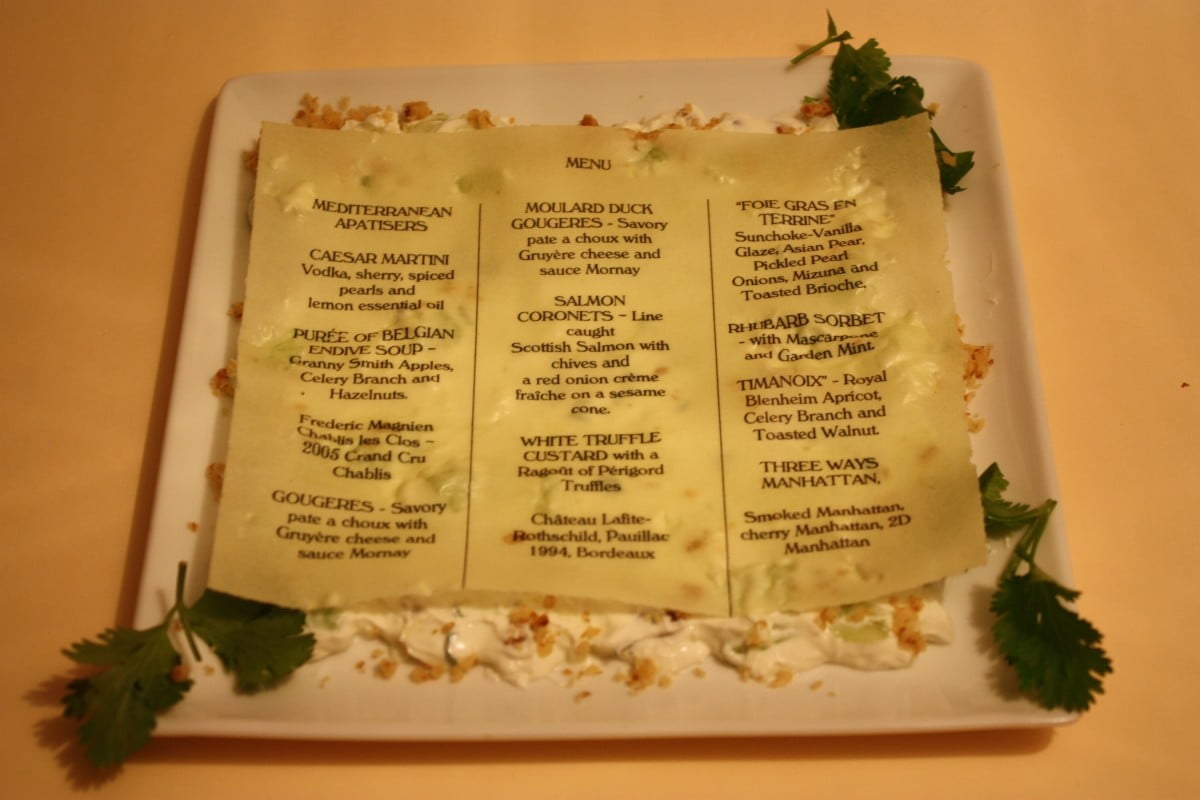 MENU
MEDITERRANEAN
APATISERS
CAESAR MARTINI
Vodka, sherry, spiced
pearls and
lemon essential oil
PURÉE OF BELGIAN
ENDIVE SOUP –
Granny Smith Apples,
Celery Branch and
Hazelnuts.
Frederic Magnien
Chablis les Clos –
2005 Grand Cru
Chablis
GOUGERES - Savory
pate a choux with
Gruyère cheese and
sauce Mornay
MOULARD DUCK
GOUGERES - Savory
pate a choux with
Gruyère cheese and
sauce Mornay
SALMON
CORONETS – Line
caught
Scottish Salmon with
chives and
a red onion crème
fraîche on a sesame
cone.
WHITE TRUFFLE
CUSTARD with a
Ragoût of Périgord
Truffles
Château Lafite-
Rothschild, Pauillac
1994, Bordeaux
"FOIE GRAS EN
TERRINE"
Sunchoke-Vanilla
Glaze, Asian Pear,
Pickled Pearl
Onions, Mizuna and
Toasted Brioche.
RHUBARB SORBET
- with Mascarpone
and Garden Mint.
TIMANOIX" - Royal
Blenheim Apricot,
Celery Branch and
Toasted Walnut.
THREE WAYS
MANHATTAN,
Smoked Manhattan,
cherry Manhattan, 2D
Manhattan